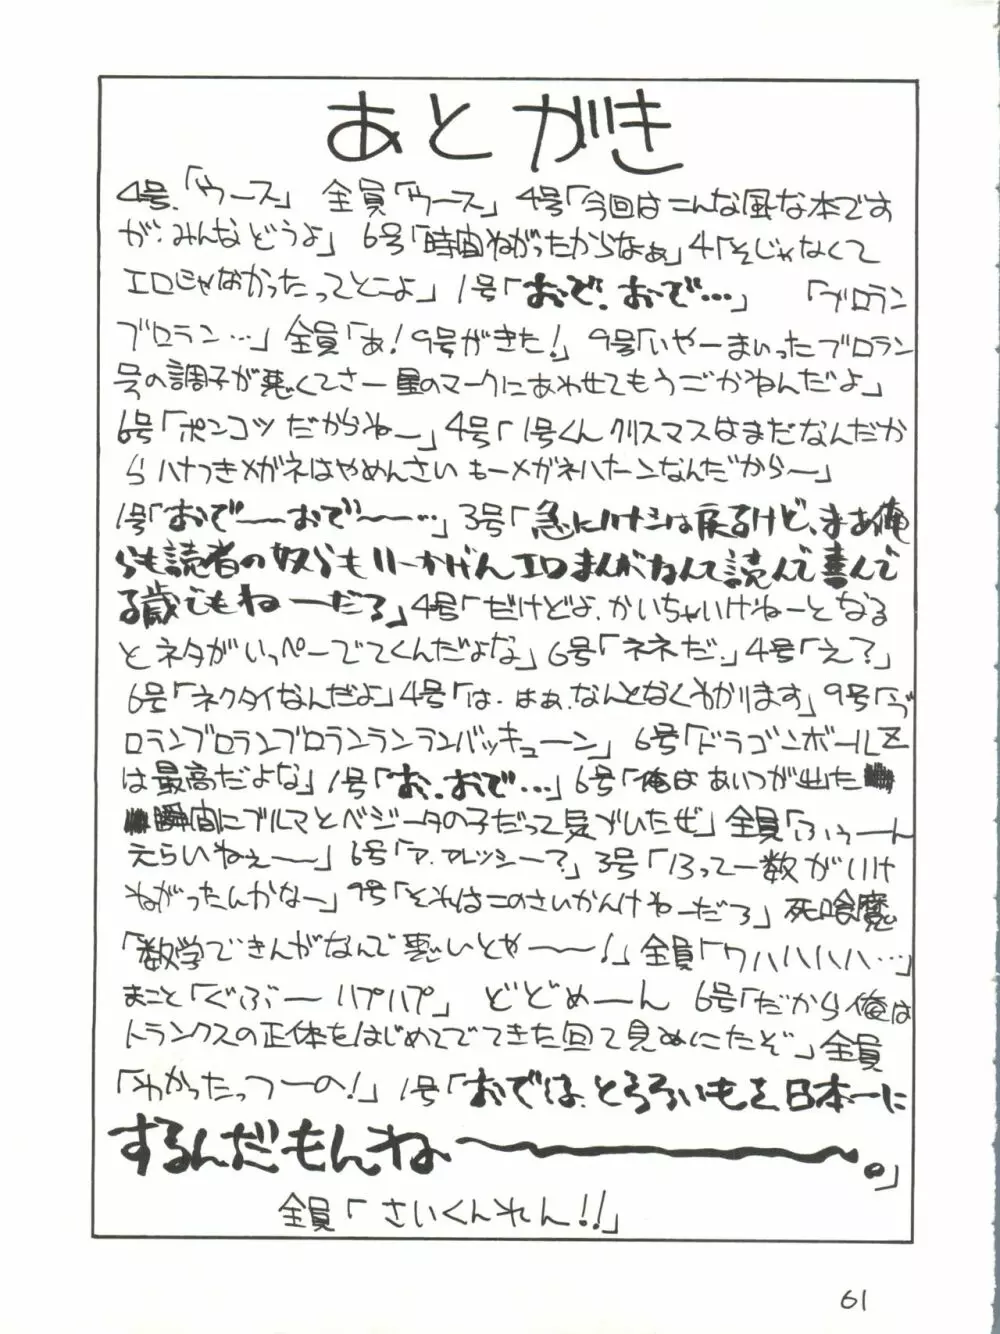 あとがき
4号.「ウース」 全員「ウース」 4号「今回はこんな風な本です
が、みんなどうよ」 6号「時間ねがったからなぁ」 4「そじゃなくて
エロじゃなかったってとこよ」 1号「おで、おで…」 「ブロラン
ブロラン…」 全員「あ!9号がきた!」 9号「いやーまいったブロラン
号の調子が悪くてさー星のマークにあわせてもうごかねんだよ」
6号「ポンコツだからねー」 4号「1号くんクリスマスはまだなんだか
らハナつきメガネはやめんさいもーメガネハナーンなんだから〜」
1号「おで〜おで〜…」 3号「急にハナシは戻るけど、まあ俺
らも読者の奴らもいーかげんエロまんがなんて読んで喜んで
る歳でもねーだろ」 4号「だけどよ、かいちゃいけねーとなる
とネタがいっぺーでてくんだよな」 6号「ネネだ.」 4号「え?」
6号「ネクタイなんだよ」 4号「は.はぁ.なんとなくわかります」 9号「ブ
ロランブロランブロランランランバッキューン」 6号「ドラゴンボールZ
は最高だよな」 1号「お、おで…」 6号「俺はあいつが出た
瞬間にブルマとベジータの子だって気づいたぜ」 全員「ふぅーん
えらいねぇ〜」 6号「ア.アレッシー?」 3号「13って一数がいけ
ねがったんかなー」 9号「それはこのさいかんけねーだろ」 死喰魔
「数学できんがなんで悪いとや〜!」 全員「ワハハハハ…」
まこと「ぐぶーハプハプ」 どどめーん 6号「だから俺は
トランクスの正体をはじめてでてきた回で見ぬいたぞ」 全員
「わかったっつーの!」 1号「おでは、とろろいもを、日本一に
するんだもんね〜。」
全員「さいくんれん!!」
61